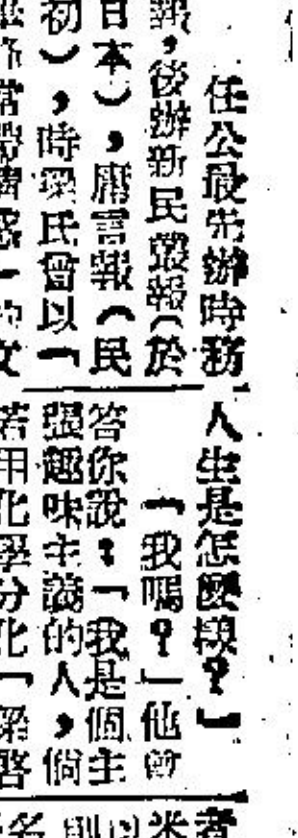 任公最先辦時務
報，後辦新民叢報（於
日本），庸言報（民
初），時梁氏曾以「
筆鋒常帶情感」的文
人生是怎麼樣？」
「我嗎？」他曾
答你說：「我是個主
張趣味主義的人，倘
若用化學分化「梁啓
者
米
以
則
名